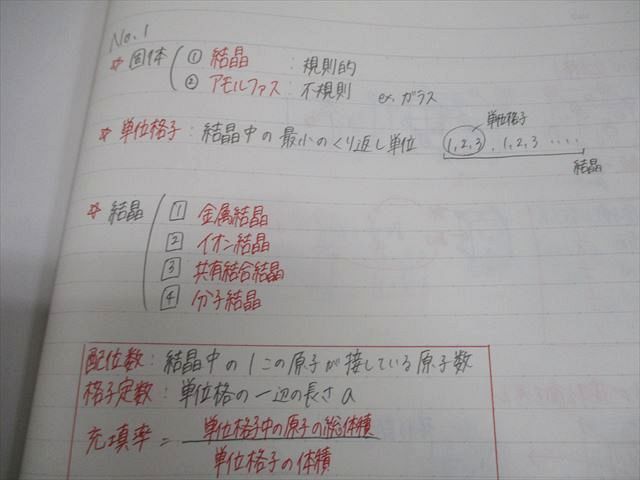 No.1
☆ 固体 ① 結晶 : 規則的
② アモルファス : 不規則 ex. ガラス
☆ 単位格子 : 結晶中の最小のくり返し単位
単位格子
1, 2, 3, 1, 2, 3 ‥‥
結晶
☆ 結晶 1 金属結晶
2 イオン結晶
3 共有結合結晶
4 分子結晶
配位数 : 結晶中の1この原子が接している原子数
格子定数 : 単位格の一辺の長さa
充填率 = 単位格子中の原子の総体積
単位格子の体積